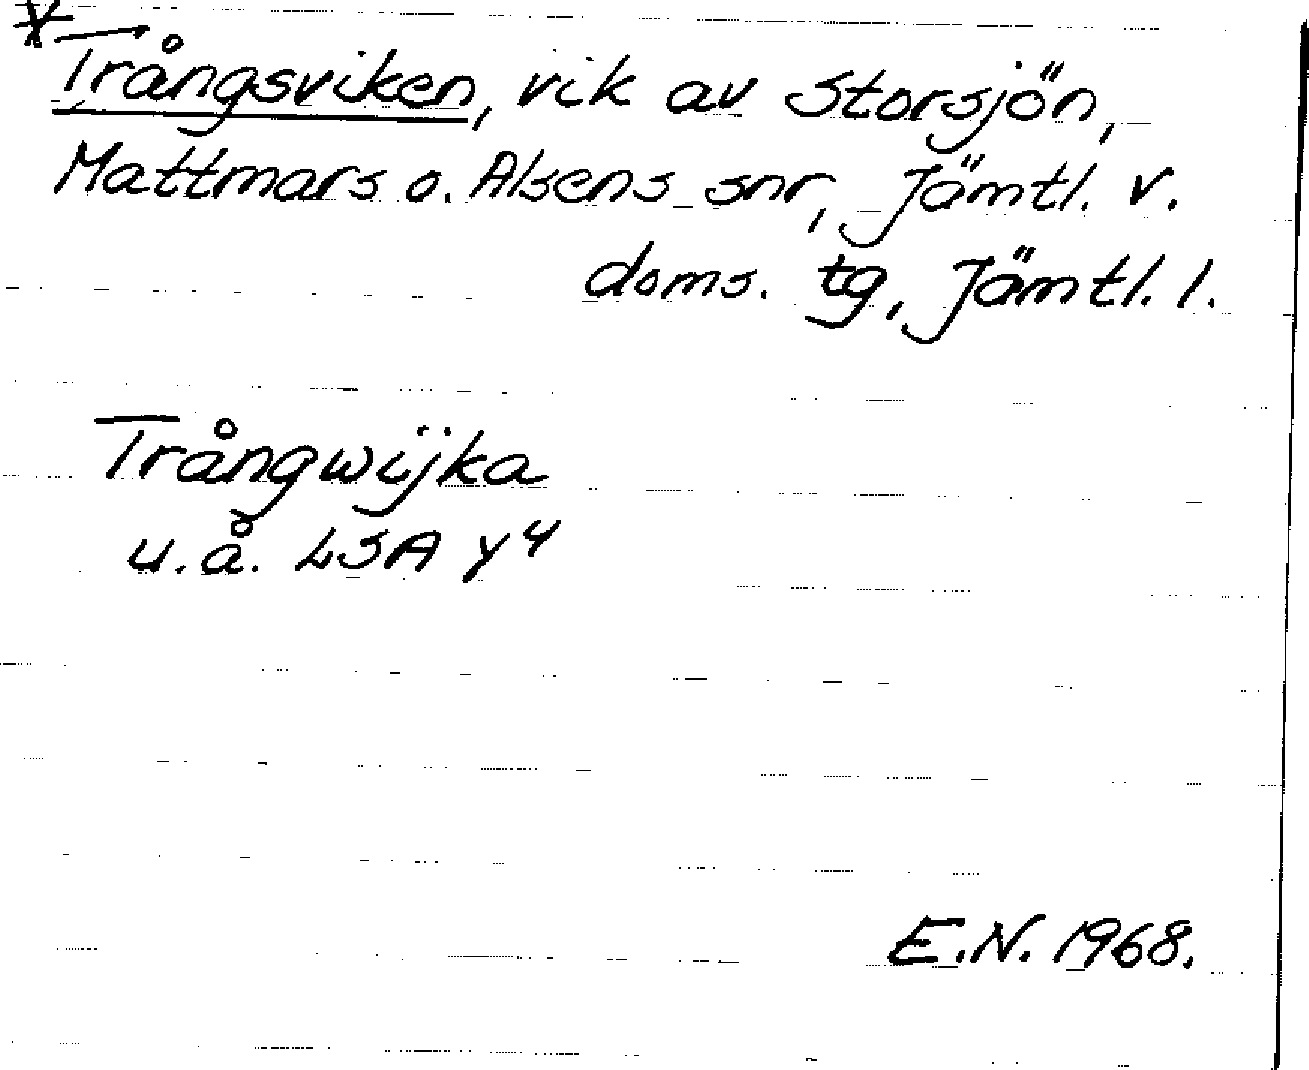 Trångsviken, vik av Storsjön,
Mattmars o. Alsens snr, Jämtl. v.
doms. tg, Jämtl. l.
Trångwijka
u.å. LSA y4
E.N. 1968.